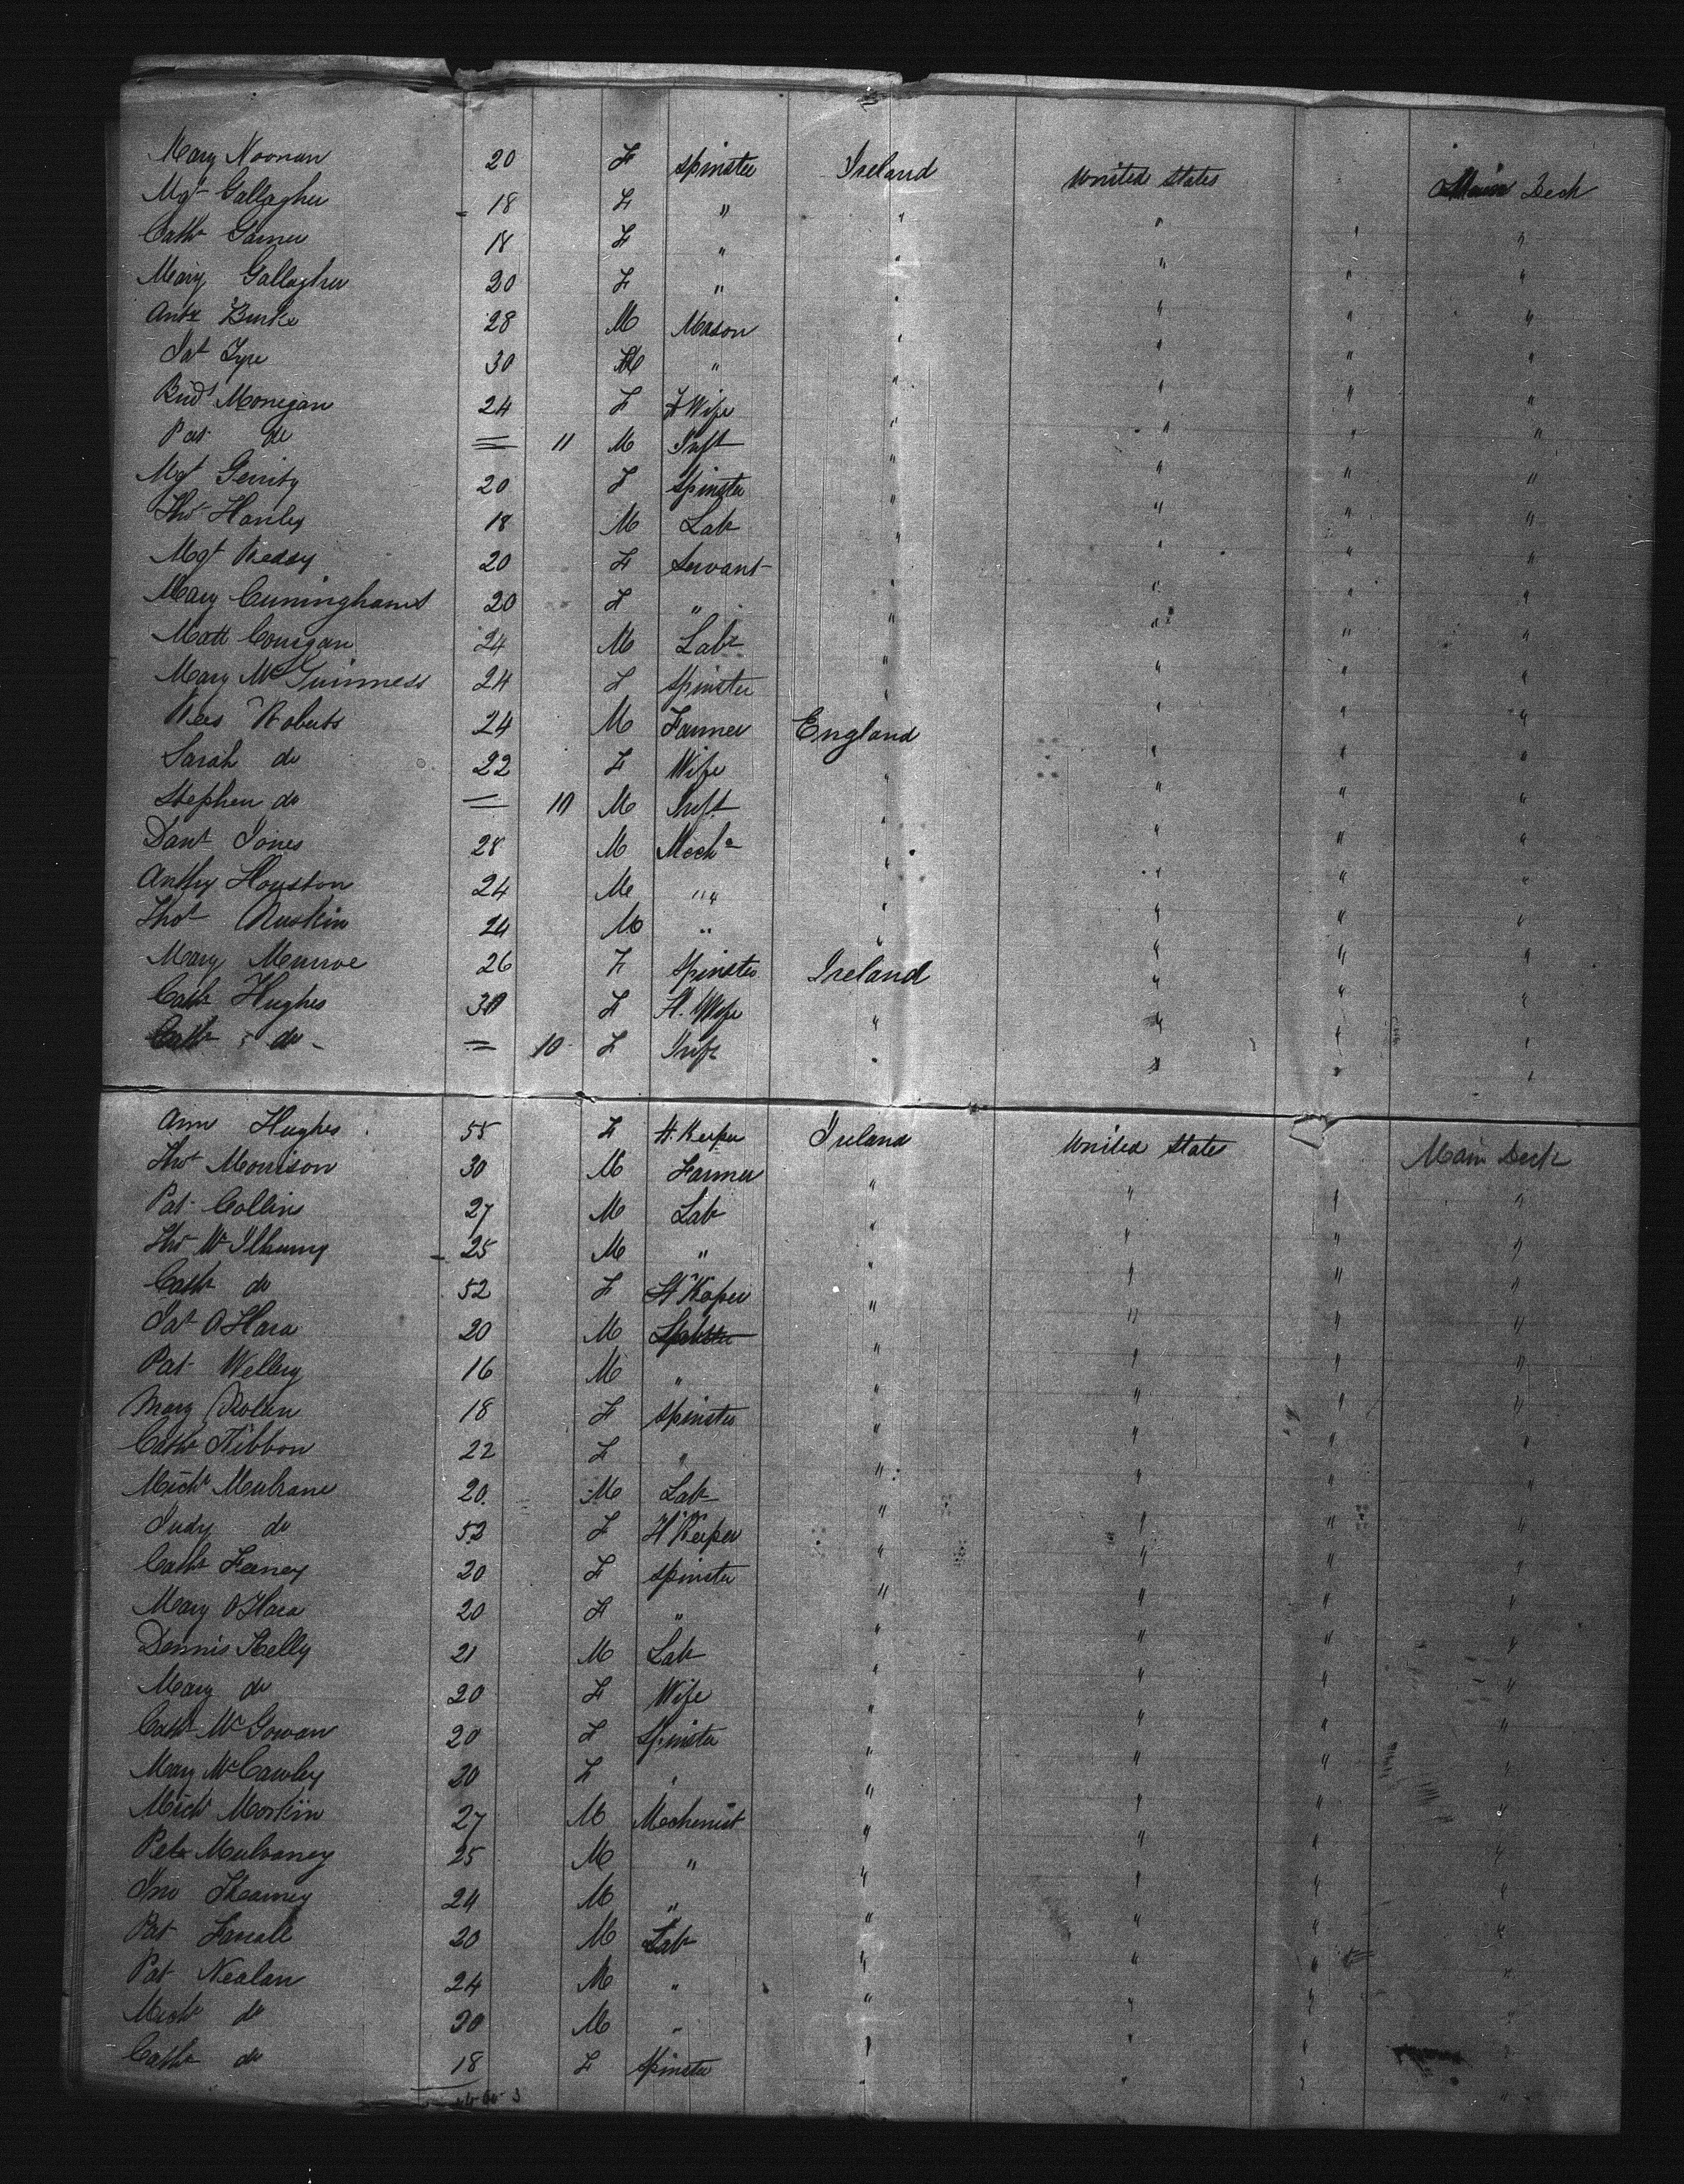 Mary Noonan 20 F spinster Ireland United States Main Deck
Mgt Gallagher 18 F " " " " "
Cathe Garner 18 F " " " " "
Mary Gallagher 20 F " " " " "
Anty Burke 28 M Mason " " " "
Pat Tyre 30 M " " " " "
Bridt Monegan 24 F H Wife " " " "
Pat do = 11 M Inft " " " "
Mgt Gerrity 20 F Spinster " " " "
Thos Hanley 18 M Labr " " " "
Mgt Reddy 20 F Servant " " " "
Mary Cuningham 20 F " " " " "
Matt Corrigan 24 M Labr " " " "
Mary McGuinness 24 F Spinster " " " "
Rees Roberts 24 M Farmer England " " "
Sarah do 22 F Wife " " " "
Stephen do = 10 M Inft " " " "
Danl Jones 28 M Mechc " " " "
Anthy Houston 24 M " " " " "
Thos Ruskin 24 M " " " " "
Mary Munroe 26 F Spinster Ireland " " "
Cath Hughes 30 F H. Wife " " " "
Cath do = 10 F Inft " " " "
Ann Hughes 55 F H. Keeper Ireland United States Main Deck
Thos Morrison 30 M Farmer " " " "
Pat Collins 27 M Labr " " " "
Thos 25 M " " " " "
Cathe do 52 F H Keeper " " " "
Pat O Hara 20 M " " " "
Pat 16 M " " " " "
Mary 18 F Spinster " " " "
Cathe Kibbon 22 F " " " " "
Michl Mulrane 20 M Labr " " " "
Judy do 52 F H Keeper " " " "
Cathe Feeney 20 F spinster " " " "
Mary O Hara 20 F " " " " "
Dennis Kelly 21 M Labr " " " "
Mary do 20 F Wife " " " "
Cath McGowan 20 F Spinster " " " "
Mary McCawley 20 F " " " " "
Michl Morkin 27 M Mechenist " " " "
Peter Mulvaney 25 M " " " " "
Jno Kearney 24 M " " " " "
Pat Farrell 20 M Labr " " " "
Pat Nealan 24 M " " " " "
Michl do 20 M " " " " "
Cathe do 18 F Spinster " " " "